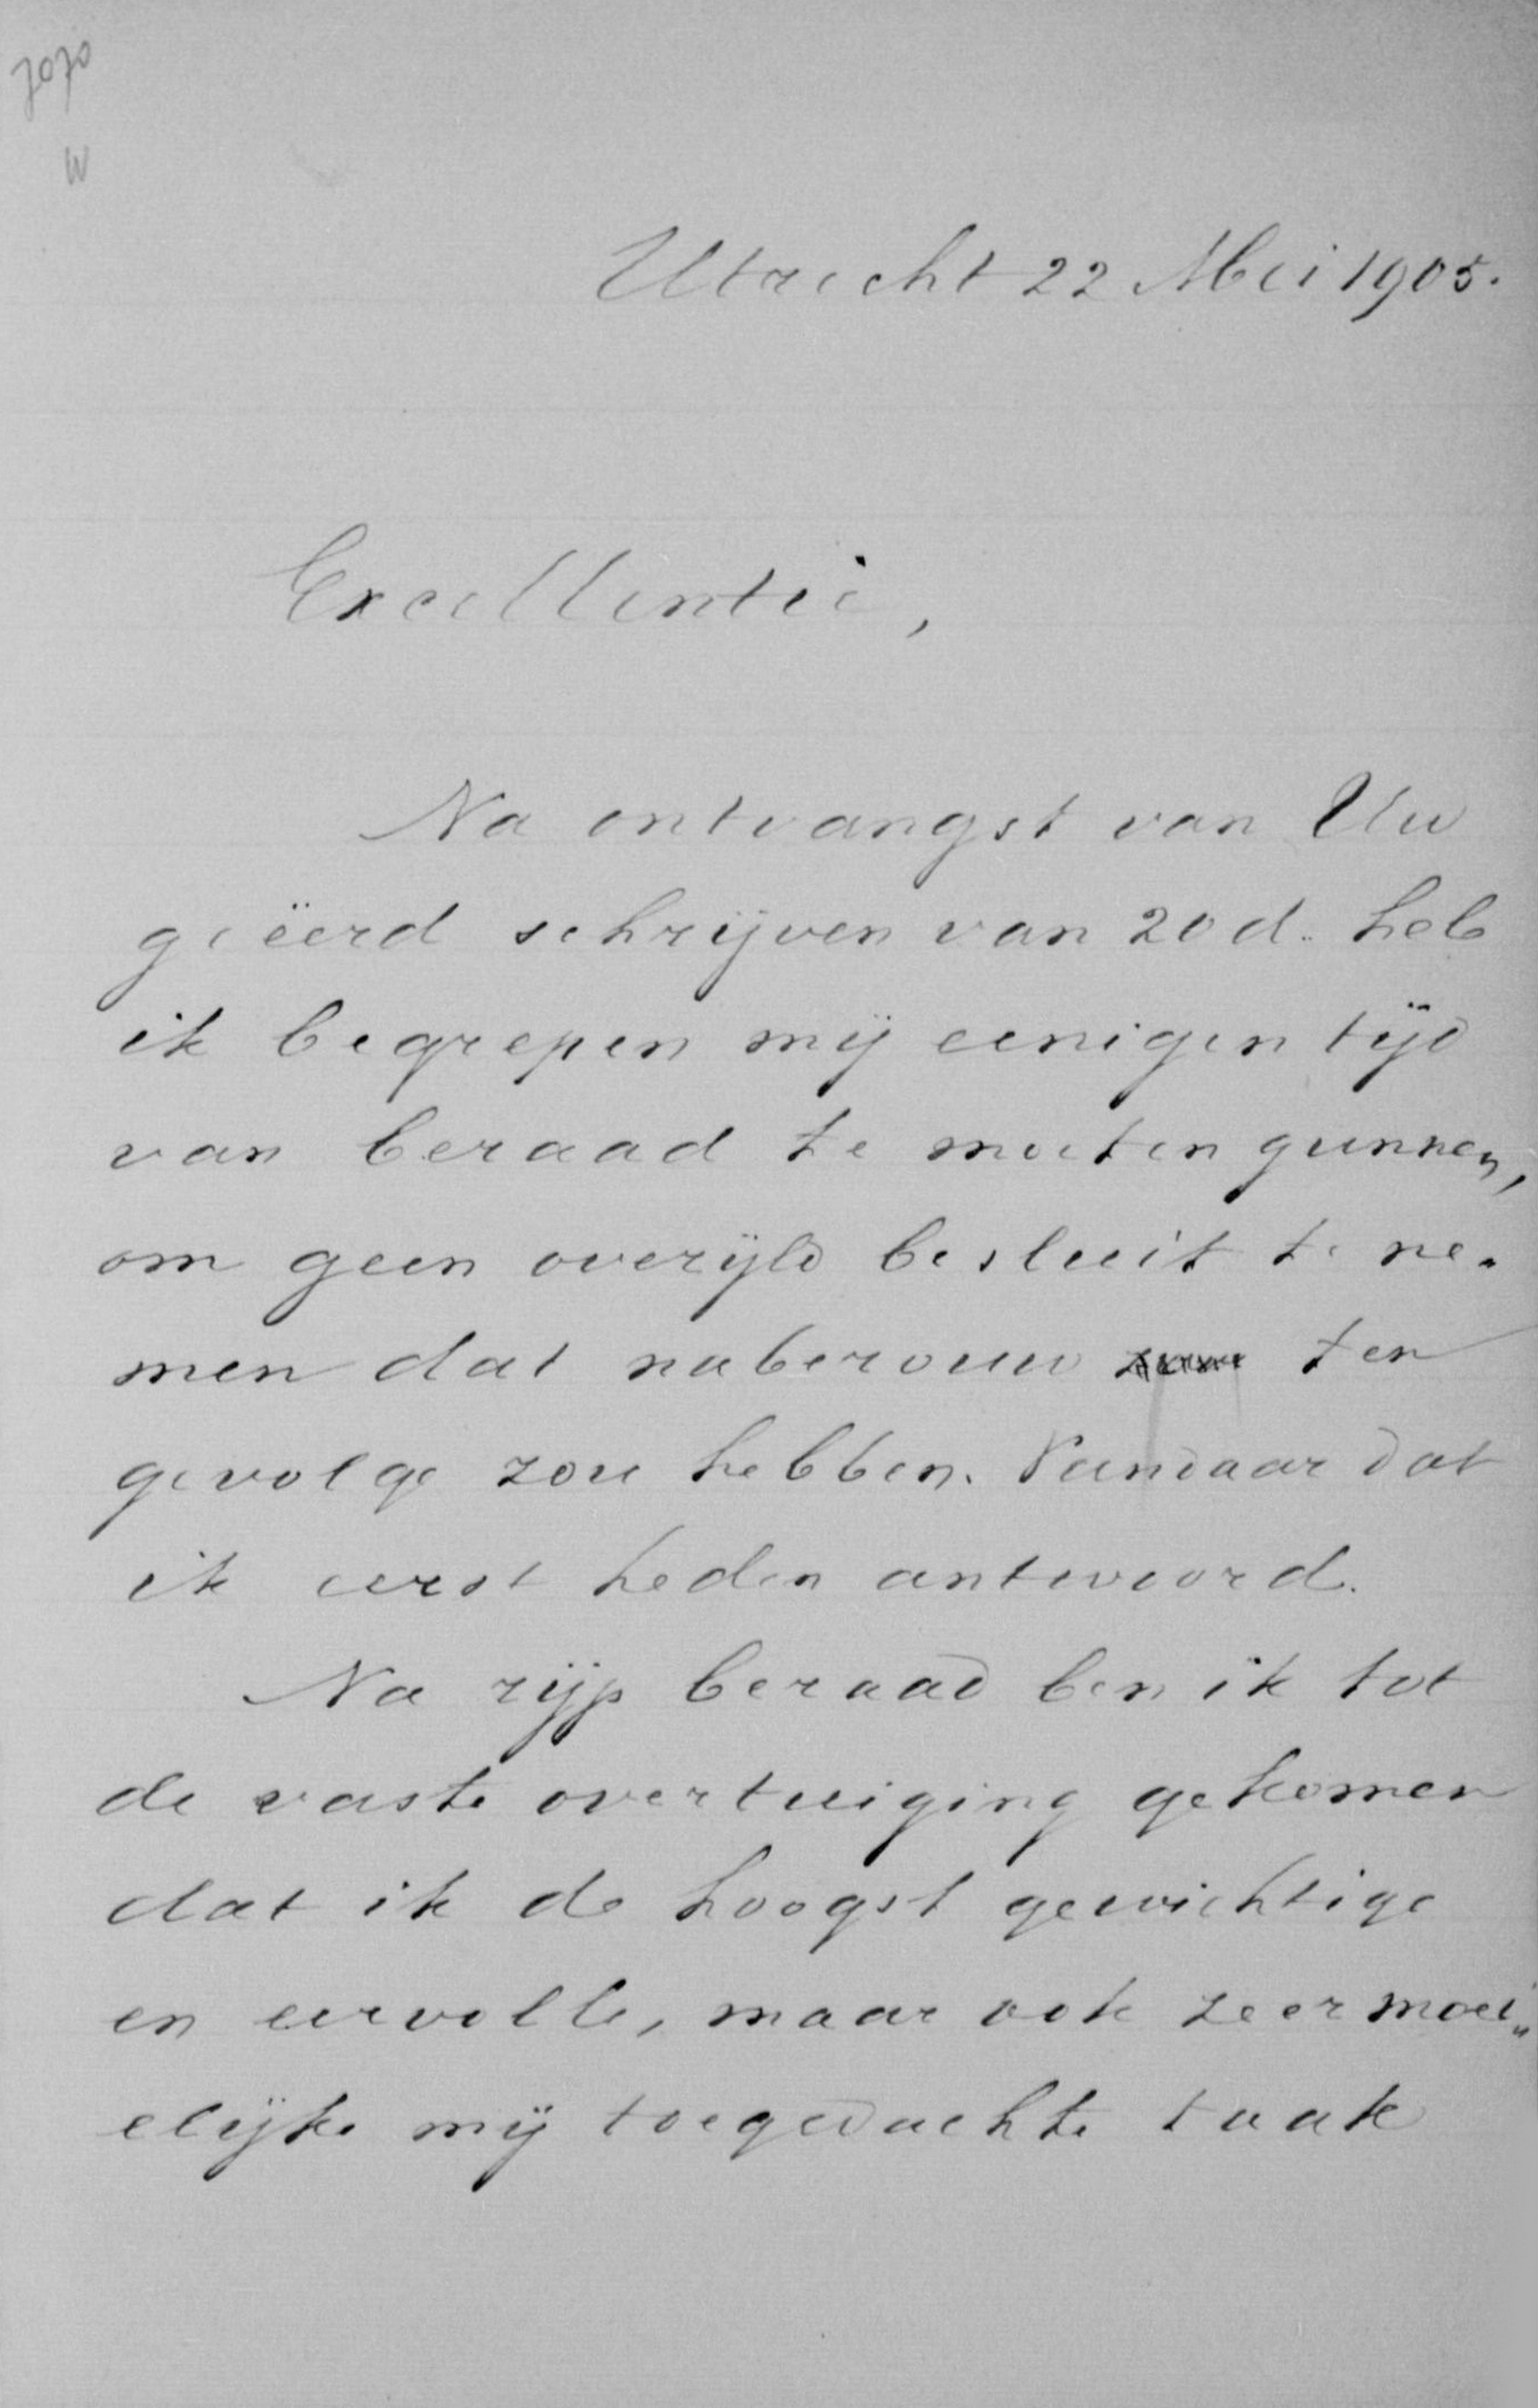 7070
W
Utrecht 22 Mei 1905.
Excellentie,
Na ontvangst van Uw
geëerd schrijven van 20 d. heb
ik begrepen mij eenigen tijd
van beraad te moeten gunnen,
om geen overijld besluit te ne-
men dat naberouw ten
gevolge zou hebben. Vandaar dat
ik eerst heden antwoord.
Na rijp beraad ben ik tot
de vaste overtuiging gekomen
dat ik de hoogst gewichtige
en eervolle, maar ook zeer moei„
elijke mij toegedachte taak